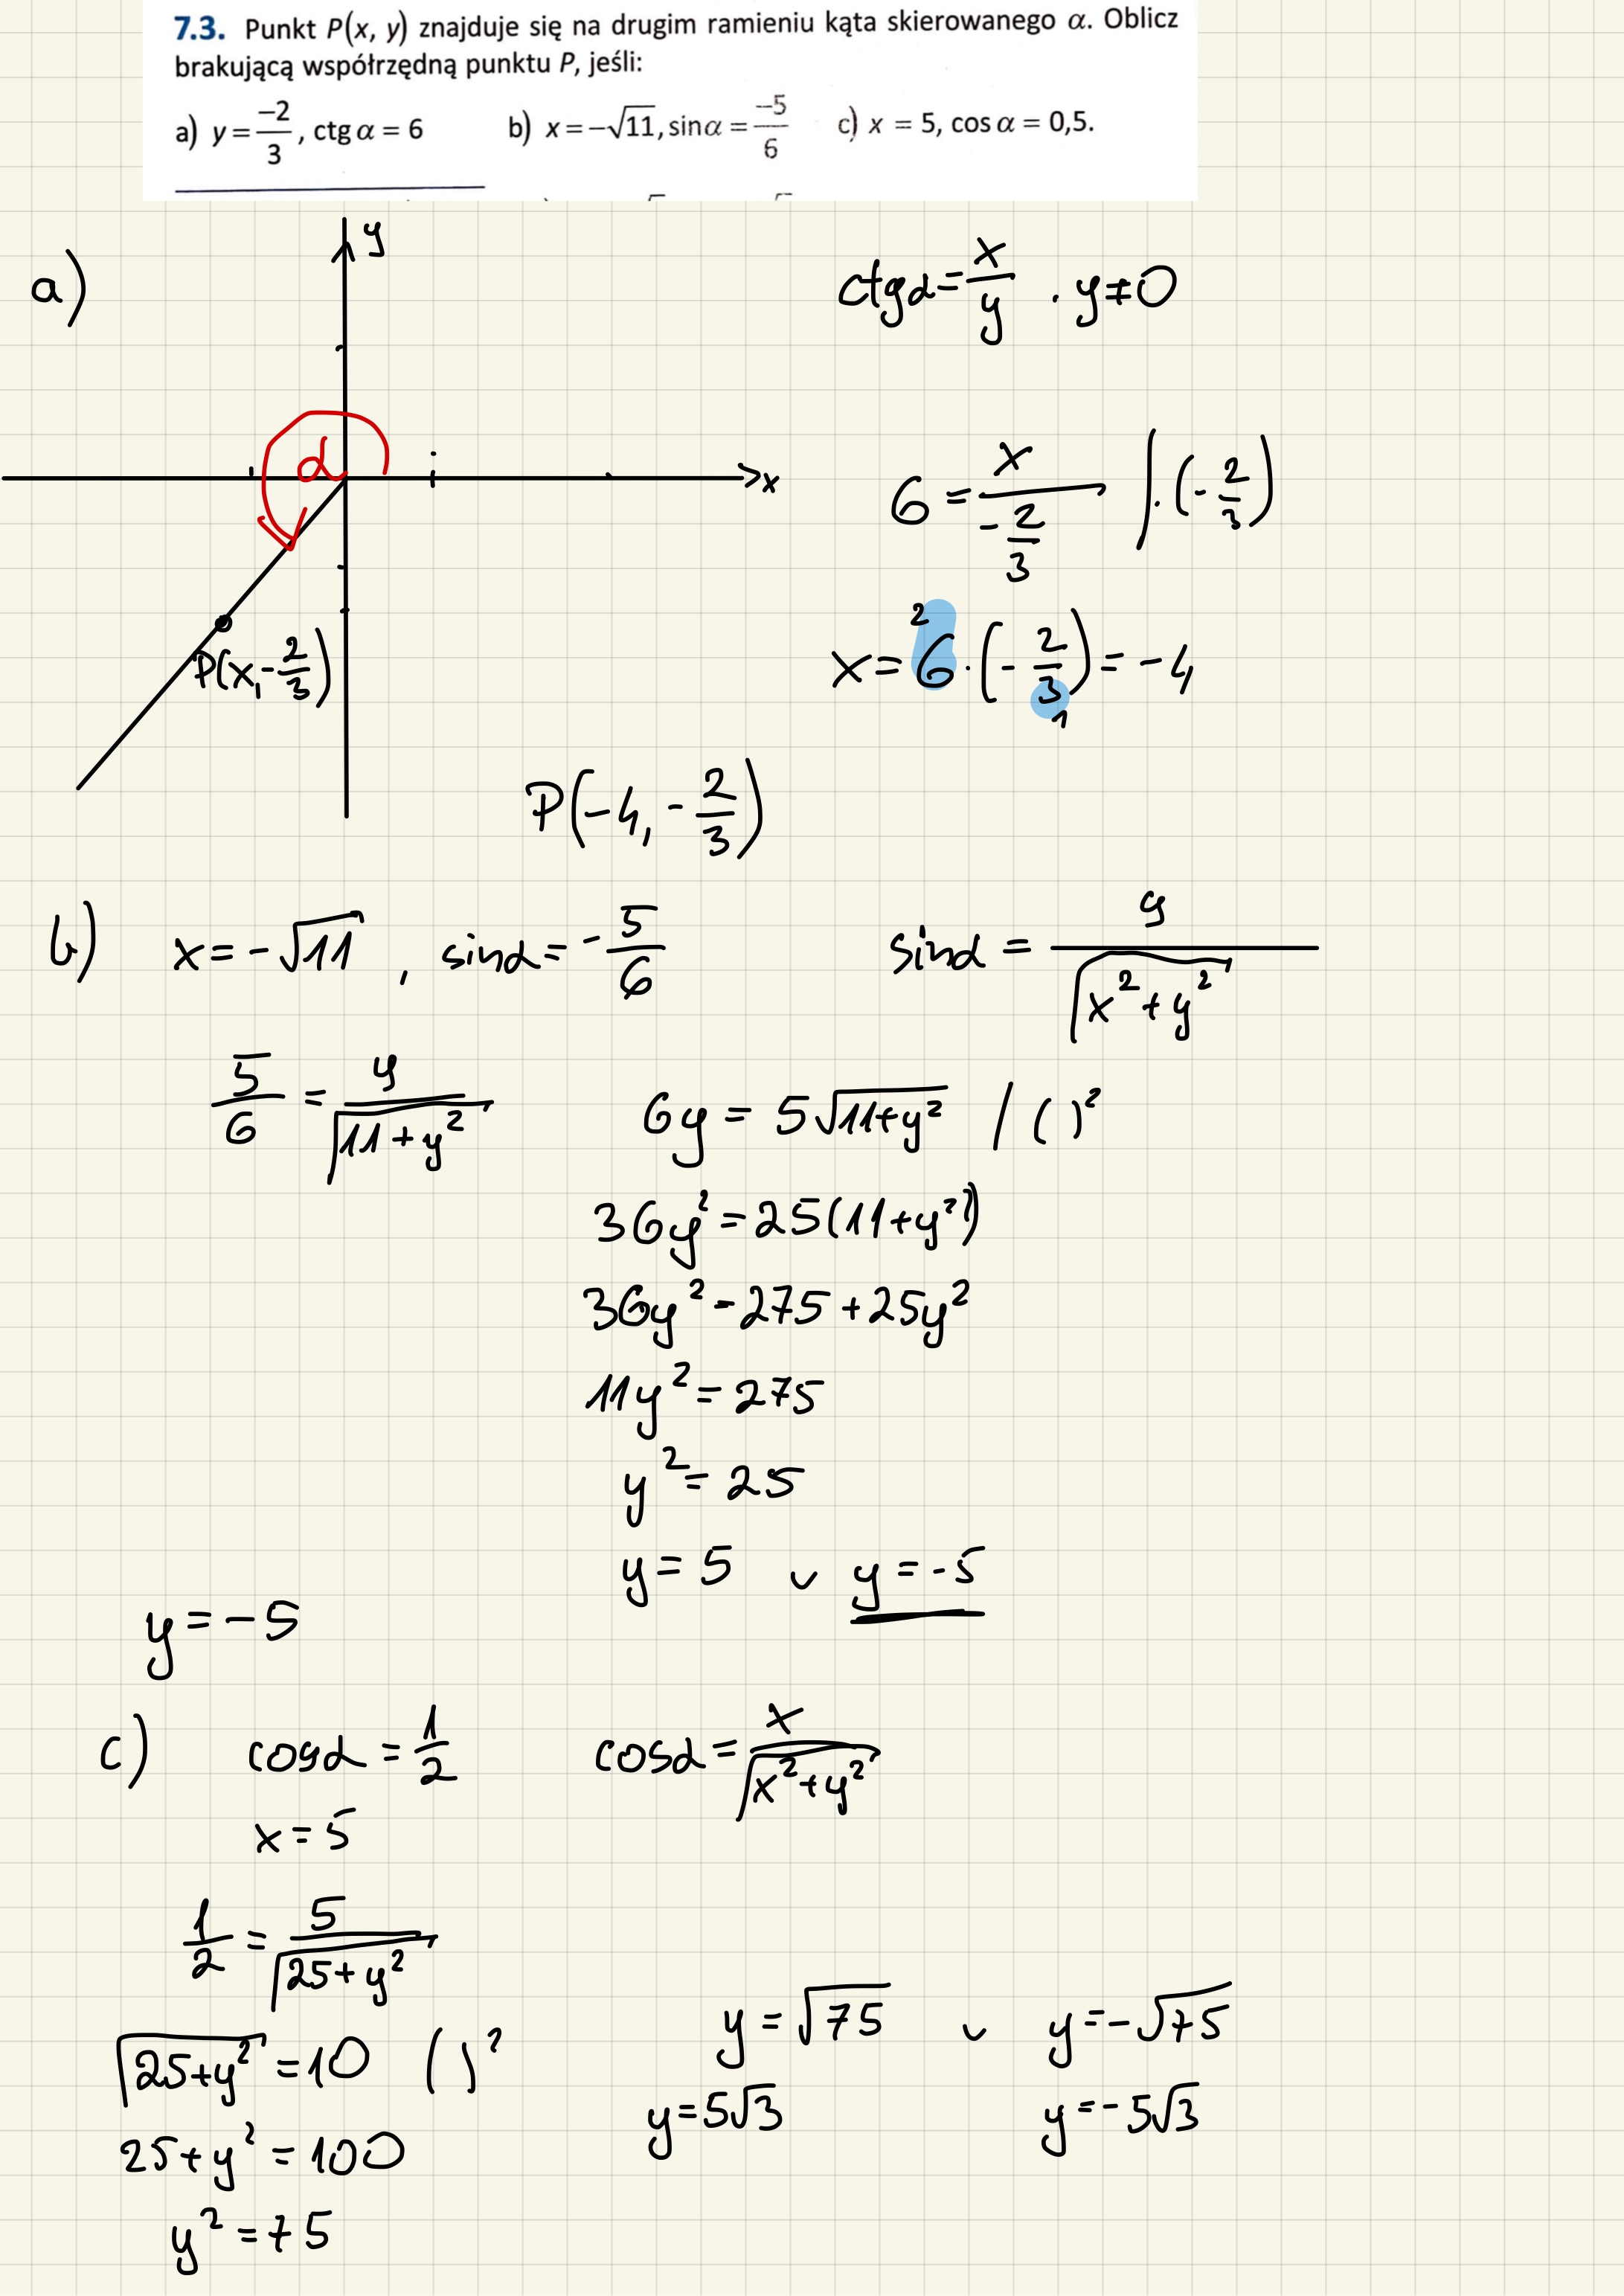 7.3. Punkt P(x, y) znajduje się na drugim ramieniu kąta skierowanego α. Oblicz
brakującą współrzędną punktu P, jeśli:
a) y = -2/3, ctg α = 6 b) x = -√11, sin α = -5/6 c) x = 5, cos α = 0,5.
a)
y
x
α
P(x, -2/3)
ctgα = x/y . y ≠ 0
6 = x/(-2/3) | · (-2/3)
x = 6 · (-2/3) = -4
2
1
P(-4, -2/3)
b) x = -√11, sinα = -5/6
sinα = y/√(x² + y²)
5/6 = y/√(11 + y²)
6y = 5√(11+y²) / ( )²
36y² = 25(11+y²)
36y² = 275 + 25y²
11y² = 275
y² = 25
y = 5 ∨ y = -5
y = -5
c) cosα = 1/2
cosα = x/√(x² + y²)
x = 5
1/2 = 5/√(25 + y²)
√(25+y²) = 10 ( )²
25 + y² = 100
y² = 75
y = √75 ∨ y = -√75
y = 5√3
y = -5√3